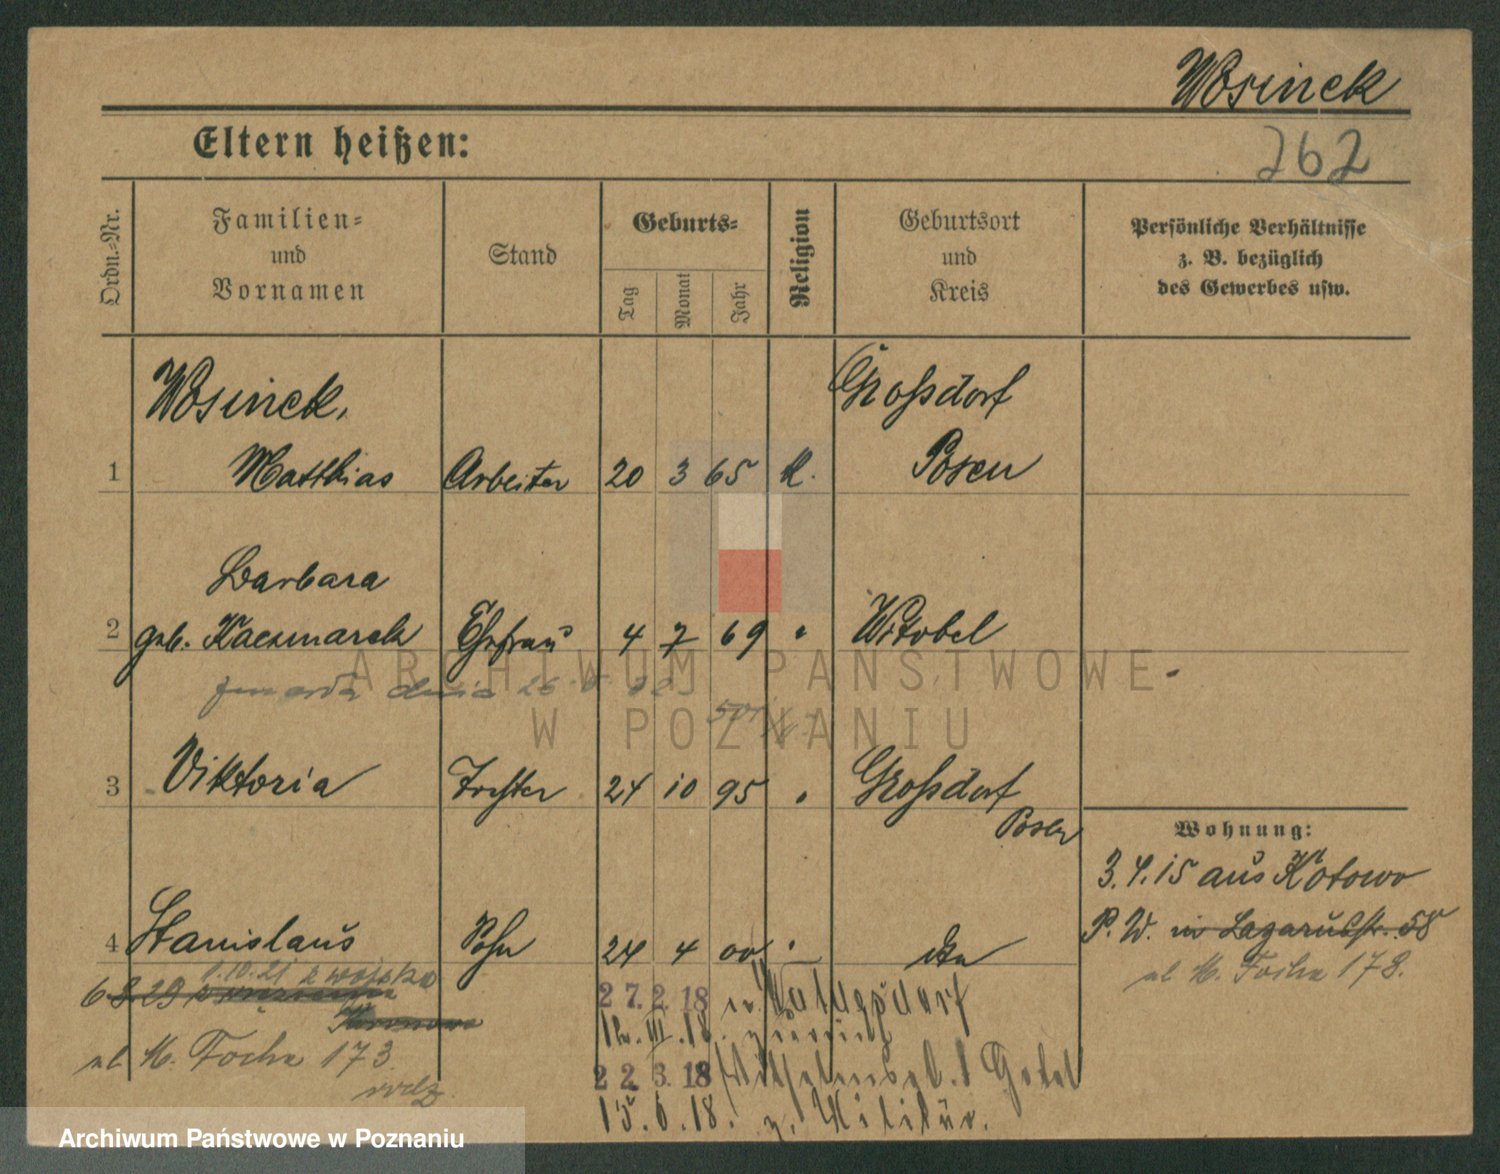 Wosinek
262
Eltern heißen:
Ordn.-Nr.
Familien-
und
Vornamen
Stand
Geburts-
Tag
Monat
Jahr
Religion
Geburtsort
und
Kreis
Persönliche Verhältnisse
z. B. bezüglich
des Gewerbes usw.
Wosinek,
Großdorf
1 Matthias Arbeiter 20 3 65 K. Posen
Barbara
2 geb. Kaczmarek Ehefrau 4 7 69 " Witobel
zmarła dnia 26
3 Viktoria Tochter 24 10 95 " Großdorf
Posen
Wohnung:
3.4.15 aus Kotowo
P. W. in Lazarusstr. 58
ul M. Focha 178.
4 Stanislaus Sohn 24 4 00 " dto
1.10.21 z wojska
6 8 29 z
27. 2. 18 in Waldersdorf
12. III. 18. zurück
ul. M. Focha 173.
22. 3. 18
15. 6. 18. z. Militär.
ARCHIWUM PAŃSTWOWE
W POZNANIU
Archiwum Państwowe w Poznaniu